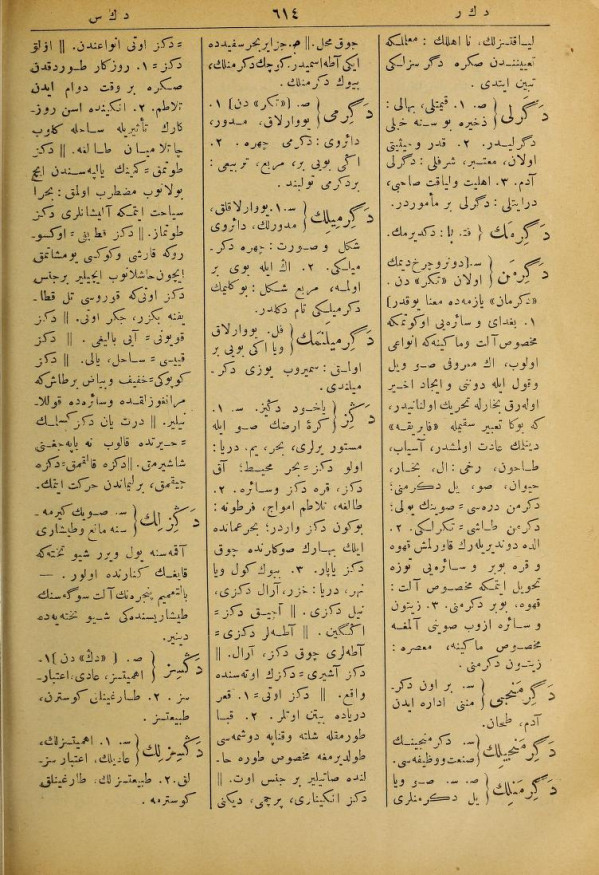 د ك ر
٦١٤
د ك س
لياقتسزلك، نا اهللك : معلملكه
تعييننده‌ن صكره دگرسزلكى
تبين ايتدى .
دَگرلى { ص. ١. قيمتلى، بهالى :
ذخيره بو سنه خيلى
دگرليدر. ٢. قدر وحيثيتى
اولان، معتبر، شرفلى : دگرلى
آدم. ٣. اهليت ولياقت صاحبى،
درايتلى : دگرلى بر مأموردر.
دَگِرمَك { فت. با : دكديرمك.
دَگِرمَن { س. [دونر وچرخ ديمك
اولان «تكر» دن.
«دكرمان» يازمه‌ده معنا يوقدر]
١. بغداى و سائره‌يى اوكوتمكه
مخصوص آلت وماكينه كه انواعى
اولوب، اك معروفى صو ويل
وقول ايله دونى و ايجاد اخير
اوله‌رق بخارله تحريك اولنانيدر،
كه بوكا تعبير سقيمله «فابريقه»
دينمك عادت اولمشدر، آسياب،
طاحون، رحى : ال، بخار،
حيوان، صو، يل دكرمنى؛
دكرمن دره‌سى = صوينك يولى؛
دكرمن طاشى = تكرلكى. ٢.
الده دونديريله‌رك قاورلمش قهوه
و قره بوبر و سائره‌يى توزه
تحويل ايتمكه مخصوص آلت :
قهوه، بوبر دكرمنى. ٣. زيتون
و سائره ازوب صوينى آلمغه
مخصوص ماكينه، معصره :
زيتون دكرمنى .
دَگِرمَنجِى { س. بر اون دكر-
منى اداره ايدن
آدم، طحان.
دَگِرمَنجِيلِك { س. دكرمنجينك
صنعت ووظيفه‌سى.
دَگِرمَنلِك { ص. س. صو ويا
يل دكرمنلرى
چوق محل. || ص. جزاير بحر سفيدده
ايكى آطه اسميدر: كوچك دكرمنلك،
بيوك دكرمنلك.
دَگِرمِى { ص. [«تكر» دن] ١.
يووارلاق، مدور،
دائروى : دكرمى چهره. ٢.
اكى بوبى بر، مربع، تربيعى :
بردكرمى تولبند .
دَگِرمِيلِك { س. ١. يووارلاقلق،
مدورلك، دائروى
شكل و صورت : چهره دكر-
ميلكى. ٢. اك ايله بوى بر
اولمه، مربع شكل : بوكتابك
دكرميلكى تام دكلدر.
دَگِرمِيلَنمَك { فل. يووارلاق
ويا اكى بوبى بر
اولمق : سميروب يوزى دكر-
ميلندى.
دَگِز { ياخود دڭيز. س. ١.
كرهٔ ارضك صو ايله
مستور يرلرى، بحر، يم، دريا :
اولو دكز = بحر محيط؛ آق
دكز، قره دكز وسائره. ٢.
طالغه، تلاطم امواج، فرطونه :
بوكون دكز واردر؛ بحر عمانده
ايلك بهارك صوكارنده چوق
دكز ياپار. ٣. بيوك كول ويا
نهر، دريا : خزر، آرال دكزى،
نيل دكزى. || آچيق دكز =
انگين. || آطه‌لر دكزى =
آطه‌لرى چوق دكز، آرال. ||
دكز آشيرى = دكزك اوته‌سنده
واقع. || دكز اوتى = ١. قعر
درياده بيتن اوتلر. ٢. قبا
طورمقله شلته وقناپه دوشمه‌سى
طولديرمغه مخصوص طوره حا-
لنده صاتيلير بر جنس اوت. ||
دكز انكينارى، پرچمى، ديكنى
= دكز اوتى انواعندن. || اولق
دكز = ١. روزكار طوردقدن
صكره بر وقت دوام ايدن
تلاطم. ٢. انكينده اسن روز-
كارك تأثيريله ساحله كلوب
چاتلاميان طالغه. || دكز
طوتمق = كمينك ياليه‌سندن ايچ
بولانوب مضطرب اولمق : بحرا
سياحت ايتمكه آليشانلرى دكز
طوتماز. || دكز قطبفى = اوكسو-
روكه قارشى وكوكسى يومشاتمق
ايچون حاشلانوب ايچيلير بر جنس
دكز اوتى كه قوروسى تل قطا-
يفنه بكزر، جكر اوتى. || دكز
قويونى = آيى باليغى. || دكز
قييسى = ساحل، يالى. || دكز
كوپوكى = خفيف وبياض بر طاش كه
مرانغوزلقده وسائره‌ده قوللا-
نيلير. || درت يان دكز كسيلمك
= حيرتده قالوب نه ياپه‌جغنى
شاشيرمق. || دكزه قالقمق = دكزه
چيقمق، بر ليماندن حركت ايتمك.
دَڭِزلِك { س. صويك كيرمه-
سنه مانع وطيشارى
آقمه‌سنه يول ويرر شيو تخته كه
قايغك كنارنده اولور. —
بالتعميم پنجره‌نك آلت سوگه‌سنك
طيشاريسنده‌كى شيو تخته‌يه‌ده
دينير.
دَگسِز { ص. [«دك» دن] ١-
اهميتسز، عادى، اعتبار-
سز. ٢. طارغينلق كوسترن،
طبيعتسز.
دَگسِزلِك { س. ١. اهميتسزلك،
عاديلك، اعتبار سز-
لق. ٢. طبيعتسزلك، طارغينلق
كوسترمه.